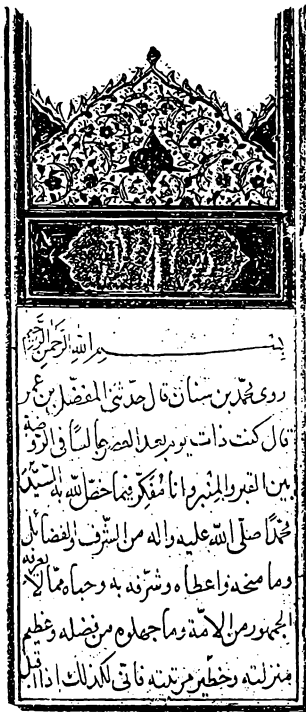 بسم الله الرحمن الرحيم
روى محمد بن سنان قال حدثني المفضل بن عمر
قال كنت ذات يوم بعد العصر جالسا في الروضة
بين القبر والمنبر وانا مفكر فيما خص الله به السيد
محمدا صلى الله عليه واله من الشرف والفضائل
وما منحه واعطاه وشرفه به وحباه مما لا يعرفه
الجمهور من الامة وما جهلوه من فضله وعظيم
منزلته وخطير مرتبته فاني لكذلك اذ اقبل